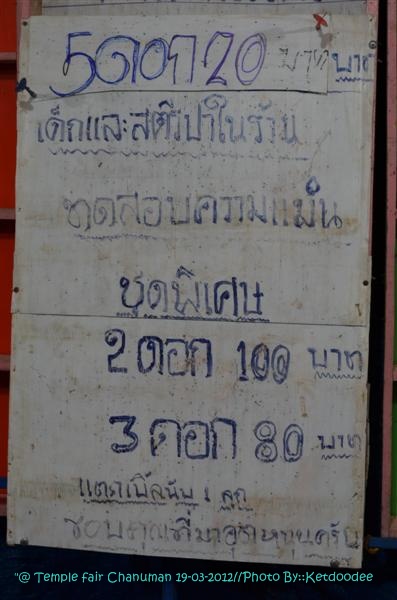 5ดอก 20 บาท บาท
เด็กและสตรีปาในร้าน
ทดสอบความแม่น
ชุดพิเศษ
2 ดอก 100 บาท
3 ดอก 80 บาท
แตกเบิ้ลนับ 1 ลูก
ขอบคุณที่มาอุดหนุนครับ
"@ Temple fair Chanuman 19-03-2012//Photo By::Ketdoodee